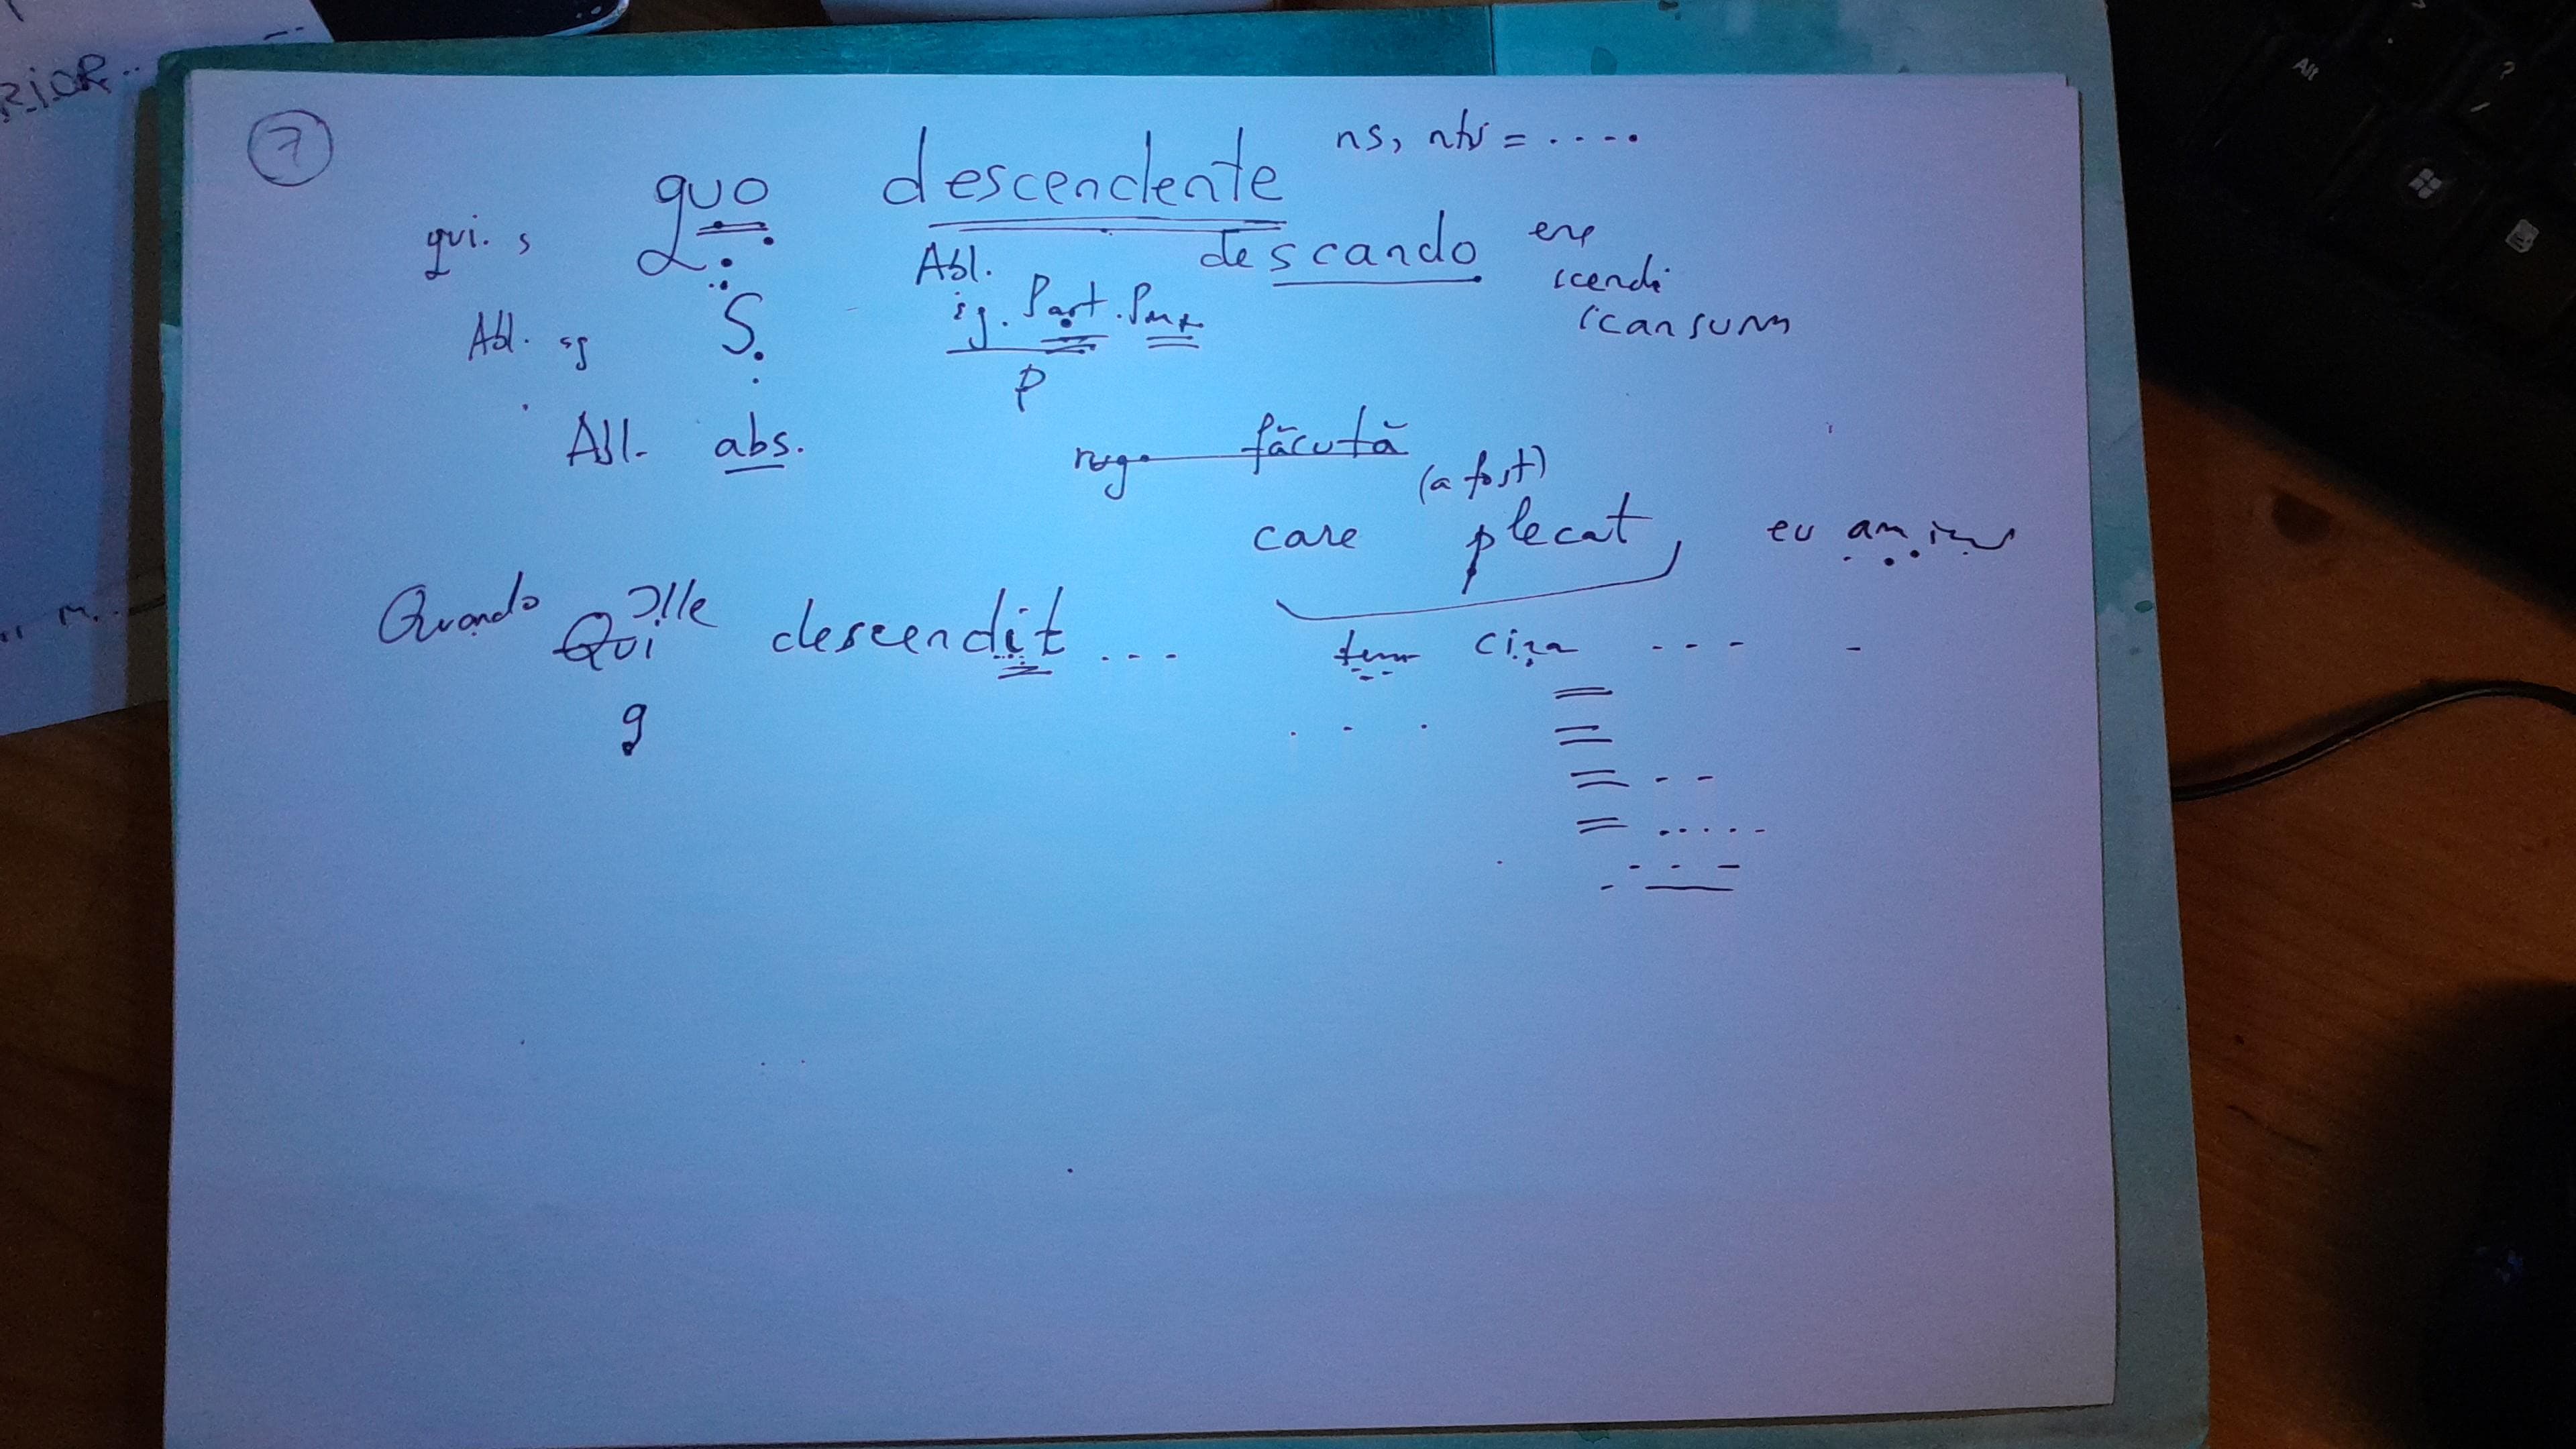 RIOR..
7
ns, ntis = ....
quo descendente
qui. s
Abl. descando ere
scendi
scansum
Abl. sg S. sg. Part. Prez
P
Abl. abs. făcută
(a fost)
care plecat, eu am
Quando Ille
Qui descendit ... - - - -
g
Alt
?